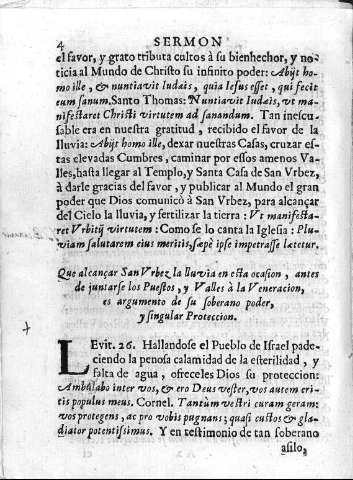 4 SERMON
el favor, y grato tributa cultos à su bienhechor, y no-
ticia al Mundo de Christo su infinito poder: Abijt ho-
mo ille, & nuntiavit Iudæis, quia Iesus esset, qui fecit
eum sanum. Santo Thomas: Nuntiavit Iudæis, ut ma-
nifestaret Christi virtutem ad sanandum. Tan inescu-
sable era en nuestra gratitud, recibido el favor de la
lluvia: Abijt homo ille, dexar nuestras Casas, cruzar es-
tas elevadas Cumbres, caminar por essos amenos Va-
lles, hasta llegar al Templo, y Santa Casa de San Vrbez,
à darle gracias del favor, y publicar al Mundo el gran
poder que Dios comunicò à San Vrbez, para alcançar
del Cielo la lluvia, y fertilizar la tierra: Vt manifesta-
ret Vrbitij virtutem: Como se lo canta la Iglesia: Plu-
viam salutarem eius meritis, sæpè ipse impetrasse lætetur.
Que alcançar San Vrbez la lluvia en esta ocasion, antes
de juntarse los Puestos, y Valles à la Veneracion,
es argumento de su soberano poder,
y singular Proteccion.
LEvit. 26. Hallandose el Pueblo de Israel pade-
ciendo la penosa calamidad de la esterilidad, y
falta de agua, ofreceles Dios su proteccion:
Ambulabo inter vos, & ero Deus vester, vos autem eri-
tis populus meus. Cornel. Tantùm vestri curam geram:
vos protegens, ac pro vobis pugnans; quasi custos & gla-
diator potentissimus. Y en testimonio de tan soberano
asilo,